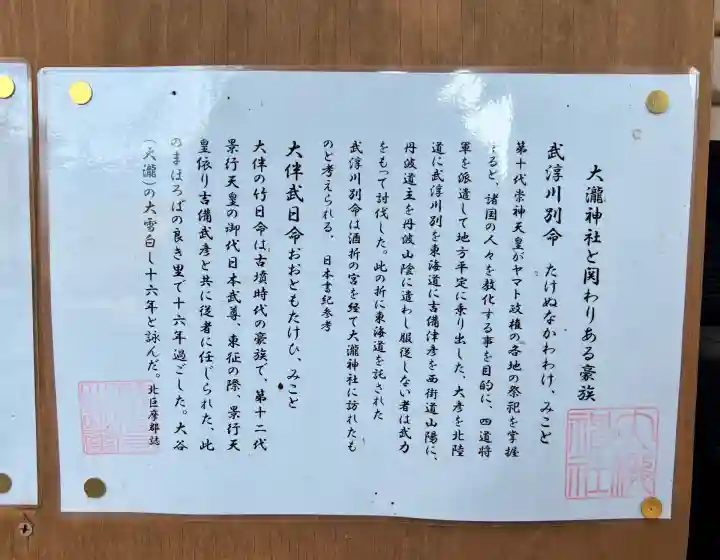 大瀧神社と関わりある豪族
武渟川別命 たけぬなかわわけ、みこと
第十代崇神天皇がヤマト政権の各地の祭祀を掌握
すると、諸国の人々を教化する事を目的に、四道将
軍を派遣して地方平定に乗り出した、大彦を北陸
道に武渟川別を東海道に吉備津彦を西街道山陽に、
丹波道主を丹波山陰に遣わし服従しない者は武力
をもって討伐した。此の折に東海道を託された
武渟川別命は酒折の宮を経て大瀧神社に訪れたも
のと考えられる、 日本書紀参考
大伴武日命おおともたけひ、みこと
大伴の竹日命は古墳時代の豪族で、第十二代
景行天皇の御代日本武尊、東征の際、景行天
皇依り吉備武彦と共に従者に任じられた、此
のまほろばの良き里で十六年過ごした。大谷
(大瀧)の大雪白し十六年と詠んだ。北巨摩郡誌
大瀧
神社